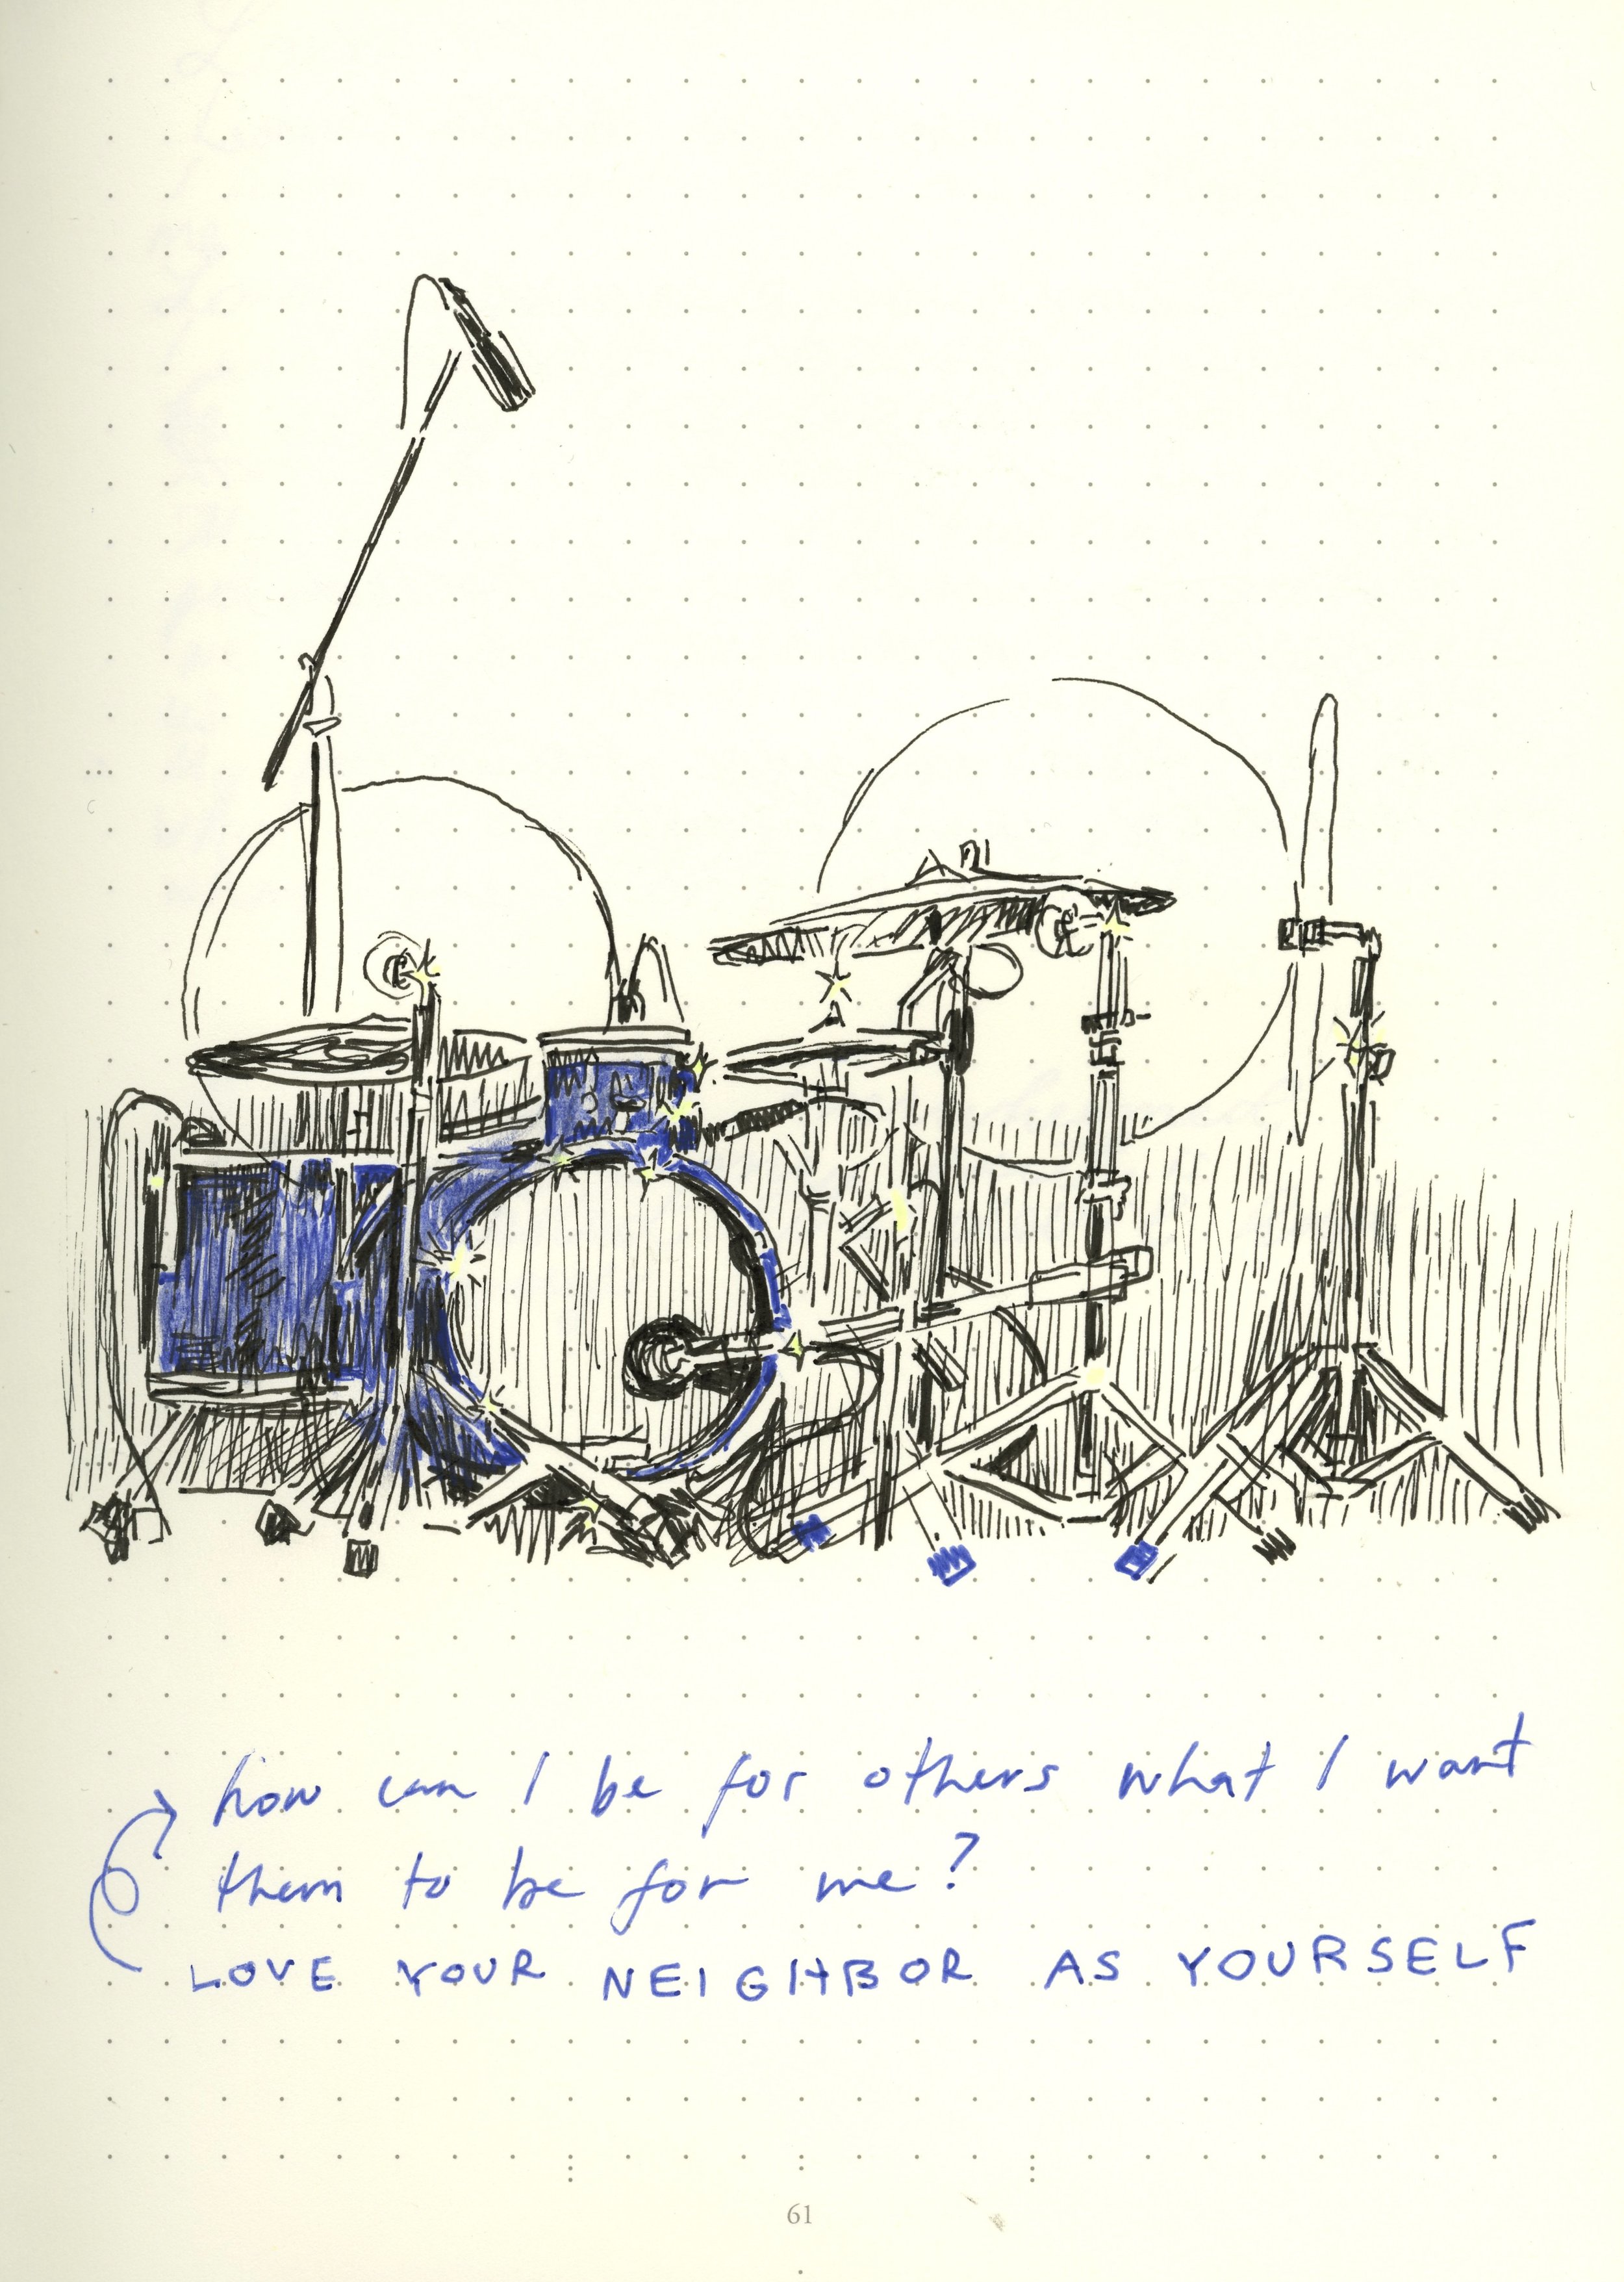 how can I be for others what I want
them to be for me?
LOVE YOUR NEIGHBOR AS YOURSELF
61